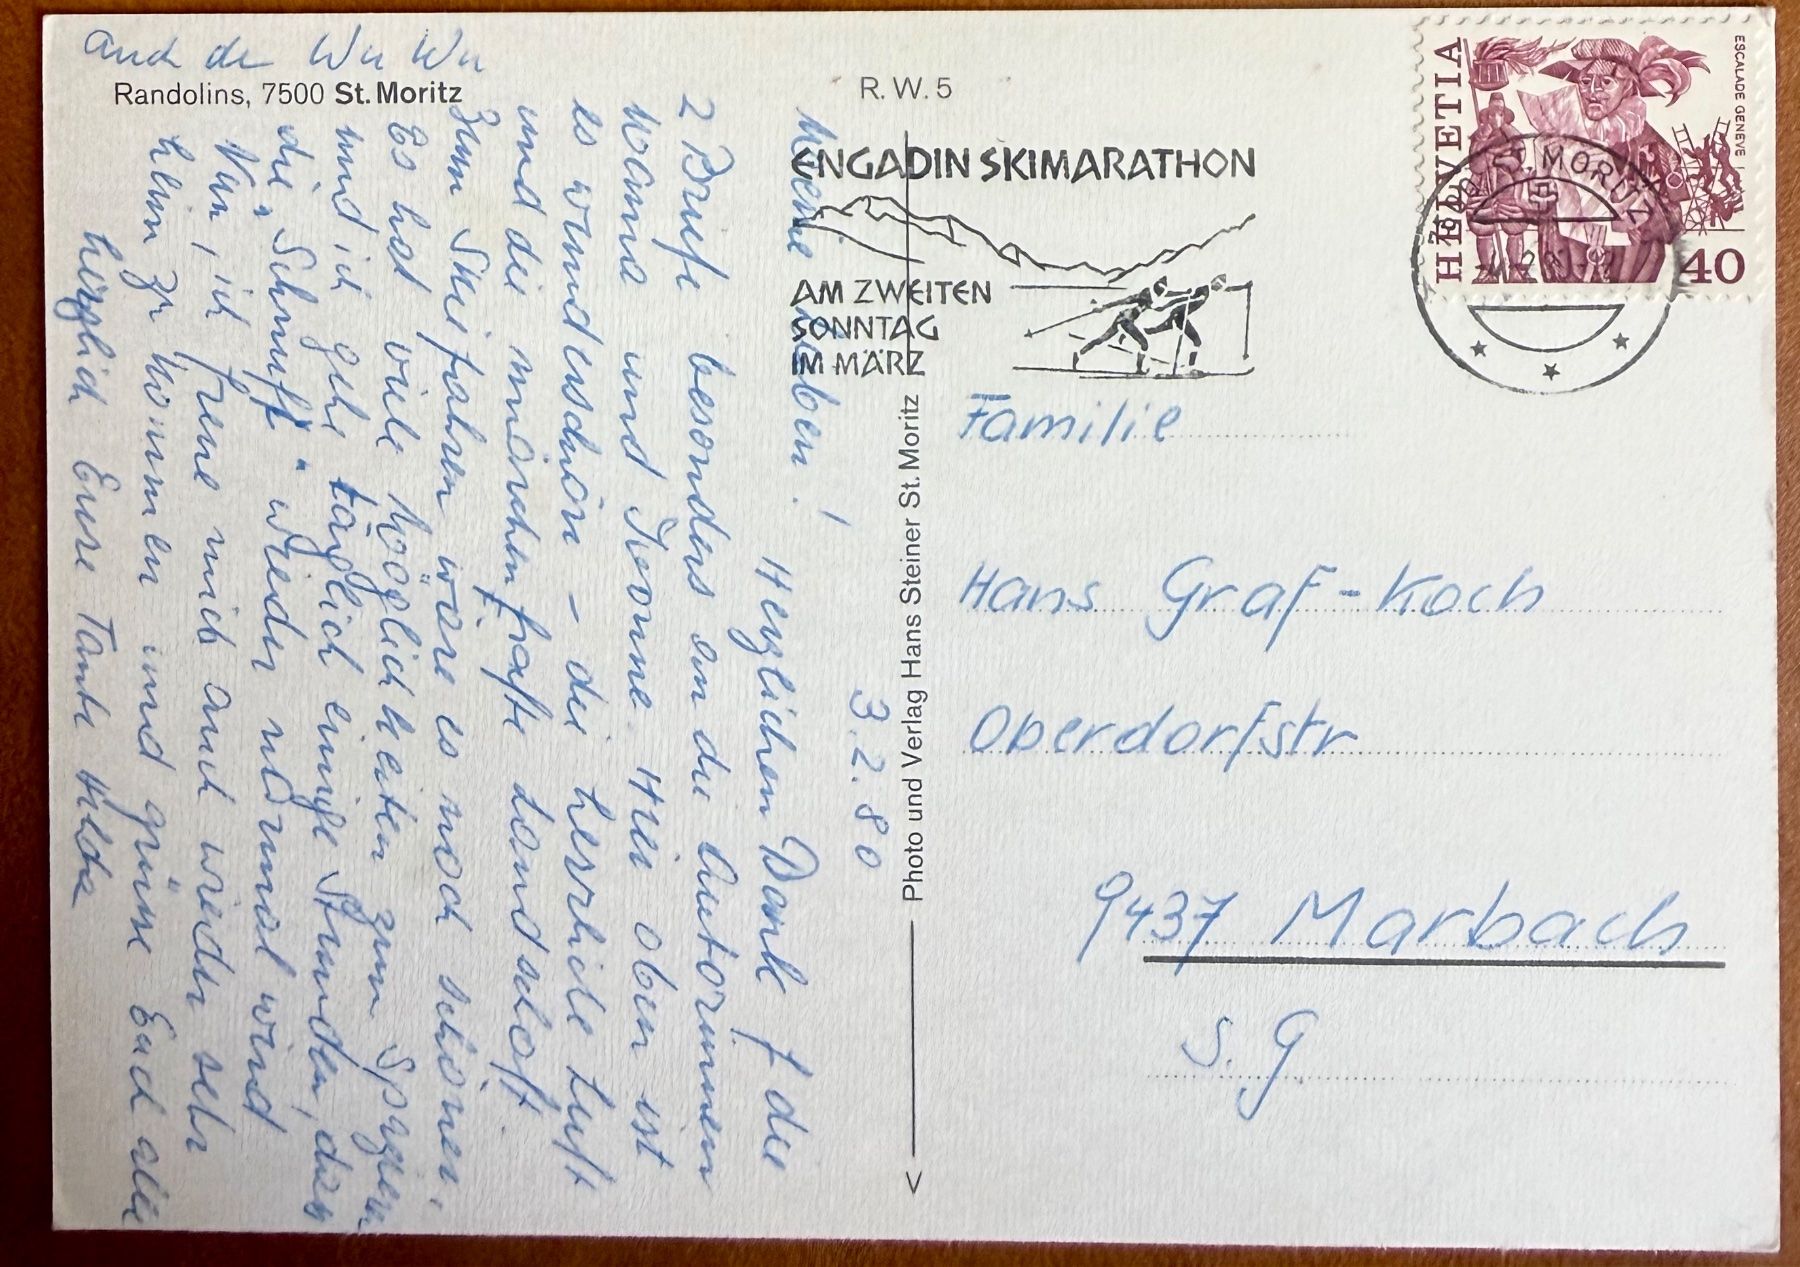 Randolins, 7500 St. Moritz
R. W. 5
ENGADIN SKIMARATHON
AM ZWEITEN
SONNTAG
IM MÄRZ
HELVETIA
ESCALADE GENEVE
40
ST. MORITZ
Photo und Verlag Hans Steiner St. Moritz
3.2.80
Meine Lieben!
Herzlichen Dank f die
2 Briefe besonders an die Autorinnen
und Ivonne. Hier oben ist
es wunderschön – die herrliche Luft
und die märchenhafte Landschaft.
Zum Skifahren wäre es noch schöner.
Es hat viele Möglichkeiten zum
und ich gehe täglich einige Stunden, dass
die wieder normal wird
Nun, ich freue mich auch wieder sehr
heim zu kommen und grüsse Euch alle
herzlich Eure Tante Hilda
auch de Wu Wu
Familie
Hans Graf-Koch
Oberdorfstr
9437 Marbach
S. G